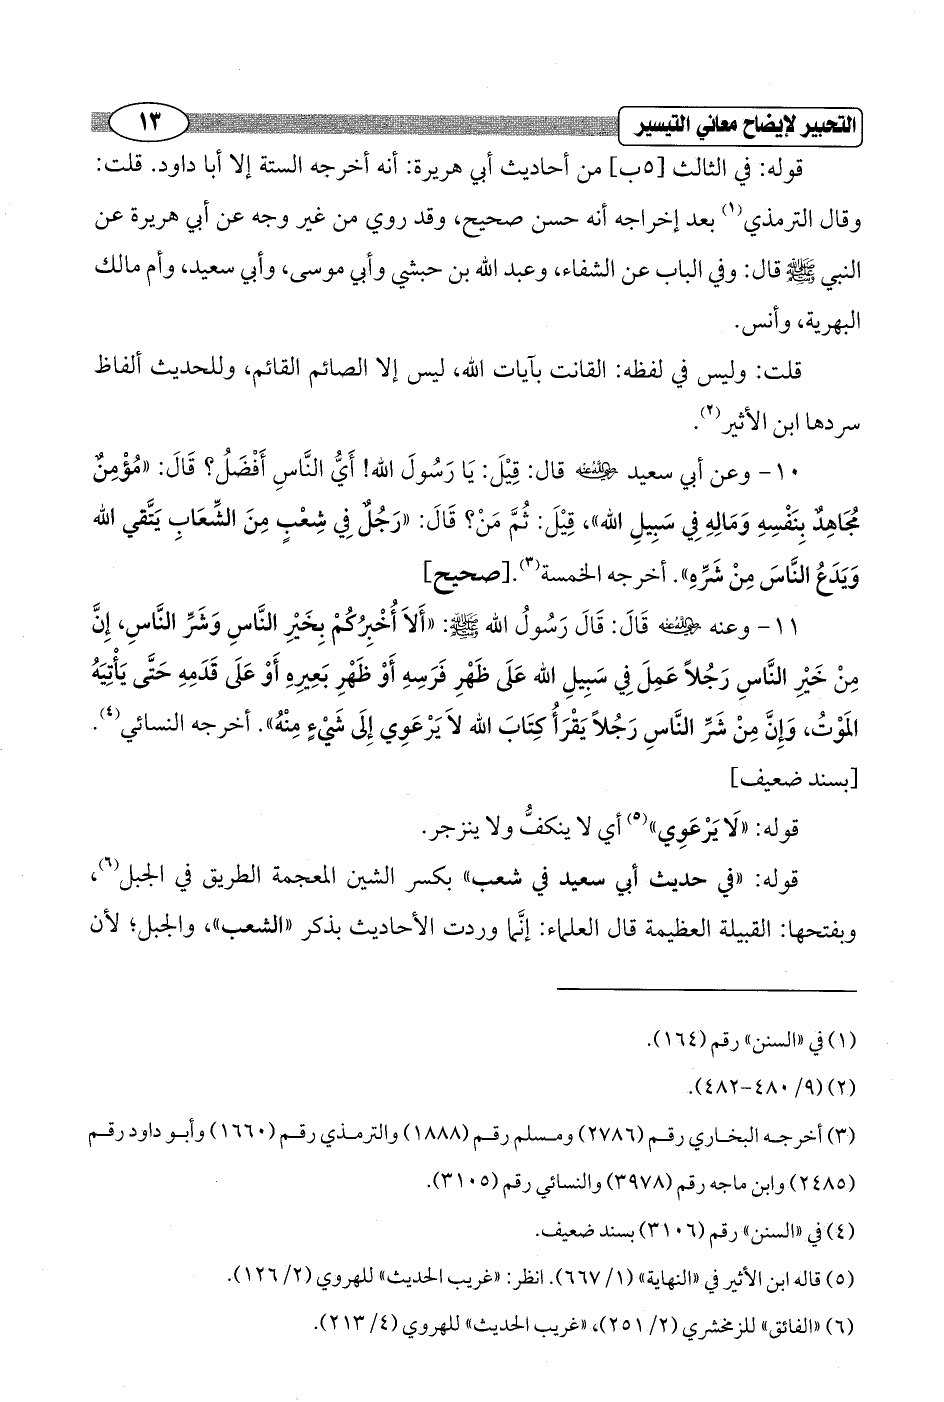 التحبير لإيضاح معاني التيسير ١٣
قوله: في الثالث [٥ب] من أحاديث أبي هريرة: أنه أخرجه الستة إلا أبا داود. قلت:
وقال الترمذي(١) بعد إخراجه أنه حسن صحيح، وقد روي من غير وجه عن أبي هريرة عن
النبي ﷺ قال: وفي الباب عن الشفاء، وعبد الله بن حبشي وأبي موسى، وأبي سعيد، وأم مالك
البهرية، وأنس.
قلت: وليس في لفظه: القانت بآيات الله، ليس إلا الصائم القائم، وللحديث ألفاظ
سردها ابن الأثير(٢).
١٠- وعن أبي سعيد رضي الله عنه قال: قِيْلَ: يَا رَسُولَ الله! أَيُّ النَّاسِ أَفْضَلُ؟ قَالَ: «مُؤْمِنٌ
مُجَاهِدٌ بِنَفْسِهِ وَمَالِهِ فِي سَبِيلِ الله»، قِيْلَ: ثُمَّ مَنْ؟ قَالَ: «رَجُلٌ فِي شِعْبٍ مِنَ الشِّعَابِ يَتَّقي الله
وَيَدَعُ النَّاسَ مِنْ شَرِّهِ». أخرجه الخمسة(٣).[صحيح]
١١- وعنه رضي الله عنه قَالَ: قَالَ رَسُولُ الله ﷺ: «أَلاَ أُخْبِرُكُمْ بِخَيْرِ النَّاسِ وَشَرِّ النَّاسِ، إِنَّ
مِنْ خَيْرِ النَّاسِ رَجُلاً عَمِلَ فِي سَبِيلِ الله عَلَى ظَهْرِ فَرَسِهِ أَوْ ظَهْرِ بَعِيرِهِ أَوْ عَلَى قَدَمِهِ حَتَّى يَأْتِيَهُ
المَوْتُ، وَإِنَّ مِنْ شَرِّ النَّاسِ رَجُلاً يَقْرَأُ كِتَابَ الله لاَ يَرْعَوِي إِلَى شَيْءٍ مِنْهُ». أخرجه النسائي(٤).
[بسند ضعيف]
قوله: «لَا يَرْعَوِي»(٥) أي لا ينكفُّ ولا ينزجر.
قوله: «في حديث أبي سعيد في شعب» بكسر الشين المعجمة الطريق في الجبل(٦)،
وبفتحها: القبيلة العظيمة قال العلماء: إنَّما وردت الأحاديث بذكر «الشعب»، والجبل؛ لأن
(١) في «السنن» رقم (١٦٤).
(٢) (٩/ ٤٨٠-٤٨٢).
(٣) أخرجه البخاري رقم (٢٧٨٦) ومسلم رقم (١٨٨٨) والترمذي رقم (١٦٦٠) وأبو داود رقم
(٢٤٨٥) وابن ماجه رقم (٣٩٧٨) والنسائي رقم (٣١٠٥).
(٤) في «السنن» رقم (٣١٠٦) بسند ضعيف.
(٥) قاله ابن الأثير في «النهاية» (١/ ٦٦٧). انظر: «غريب الحديث» للهروي (٢/ ١٢٦).
(٦) «الفائق» للزمخشري (٢/ ٢٥١)، «غريب الحديث» للهروي (٤/ ٢١٣).